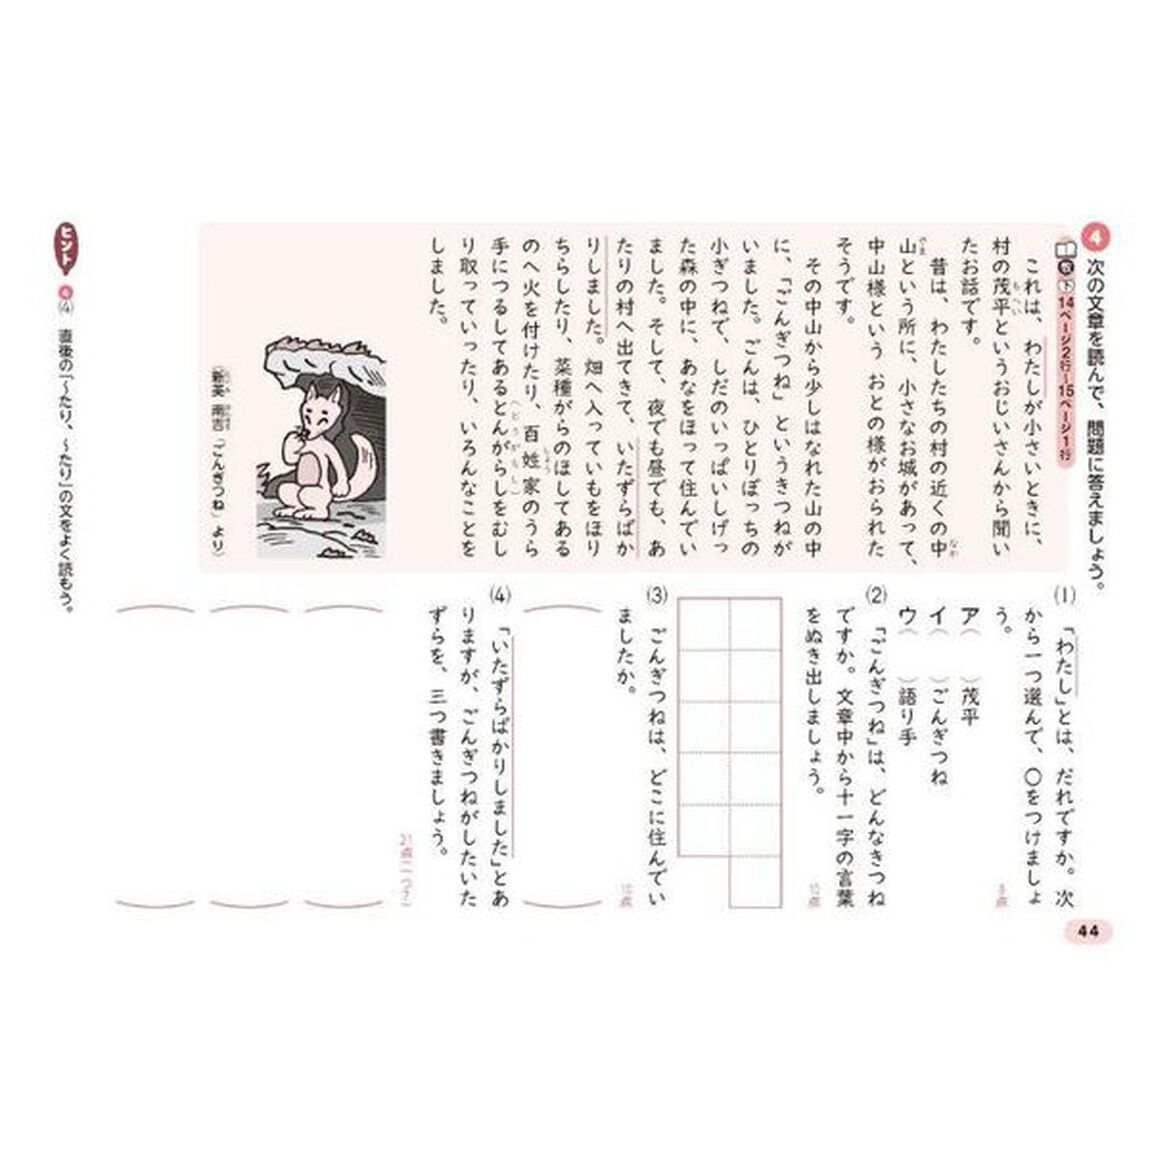 4 次の文章を読んで、問題に答えましょう。
教 下 14ページ2行〜15ページ1行
これは、わたしが小さいときに、
村の茂平というおじいさんから聞い
もへい
たお話です。
昔は、わたしたちの村の近くの中
なか
山という所に、小さなお城があって、
やま
中山様という おとの様がおられた
そうです。
その中山から少しはなれた山の中
に、「ごんぎつね」というきつねが
いました。ごんは、ひとりぼっちの
小ぎつねで、しだのいっぱいしげっ
た森の中に、あなをほって住んでい
ました。そして、夜でも昼でも、あ
たりの村へ出てきて、いたずらばか
りしました。畑へ入っていもをほり
ちらしたり、菜種がらのほしてある
のへ火を付けたり、百姓家のうら
しょう
手につるしてあるとんがらしをむし
（とうがらし）
り取っていったり、いろんなことを
しました。
（新美 南吉「ごんぎつね」より）
にいみ なんきち
(1) 「わたし」とは、だれですか。次
から一つ選んで、〇をつけましょ
う。
8点
ア（　）茂平
イ（　）ごんぎつね
ウ（　）語り手
(2) 「ごんぎつね」は、どんなきつね
ですか。文章中から十一字の言葉
をぬき出しましょう。
10点
(3) ごんぎつねは、どこに住んでい
ましたか。
10点
(4) 「いたずらばかりしました」とあ
りますが、ごんぎつねがしたいた
ずらを、三つ書きましょう。
21点(一つ7)
ヒント 4(4) 直後の「〜たり、〜たり」の文をよく読もう。
44